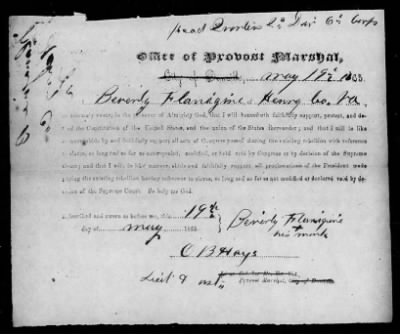 Head Quarters 2d Div 6th Corps
Office of Provost Marshal,
May 19th 1865
Beverly Flanigin of Henry Co. Va
do solemnly swear, in the presence of Almighty God, that I will henceforth faithfully support, protect, and de-
fend the Constitution of the United States, and the union of the States thereunder; and that I will in like
manner abide by and faithfully support all acts of Congress passed during the existing rebellion with reference
to slaves, so long and so far as not repealed, modified, or held void by Congress or by decision of the Supreme
Court; and that I will in like manner, abide and faithfully support all proclamations of the President made
during the existing rebellion having reference to slaves, so long and so far as not modified or declared void by de-
cision of the Supreme Court. So help me God.
Subscribed and sworn to before me, this 19th
day of May 1865
Beverly Flanigin
his mark
C B Hays
Lieut &
Provost Marshal,